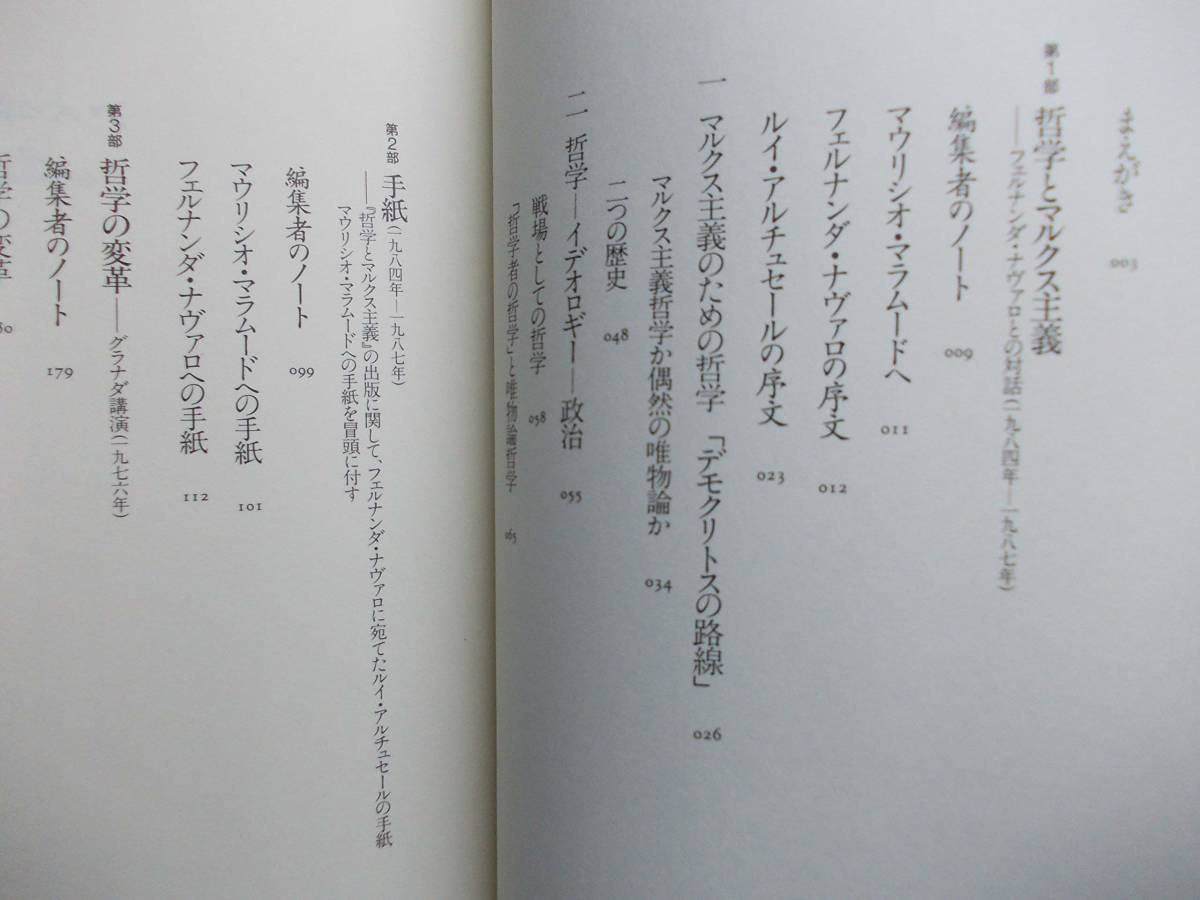 まえがき 003
第1部 哲学とマルクス主義
——フェルナンダ・ナヴァロとの対話(一九八四年—一九八七年)
編集者のノート 009
マウリシオ・マラムードへ 011
フェルナンダ・ナヴァロの序文 012
ルイ・アルチュセールの序文 023
一 マルクス主義のための哲学 「デモクリトスの路線」 026
マルクス主義哲学か偶然の唯物論か 034
二つの歴史 048
二 哲学—イデオロギー—政治 055
戦場としての哲学 058
「哲学者の哲学」と唯物論哲学 065
第2部 手紙(一九八四年—一九八七年)
——『哲学とマルクス主義』の出版に関して、フェルナンダ・ナヴァロに宛てたルイ・アルチュセールの手紙
マウリシオ・マラムードへの手紙を冒頭に付す
編集者のノート 099
マウリシオ・マラムードへの手紙 101
フェルナンダ・ナヴァロへの手紙 112
第3部 哲学の変革——グラナダ講演(一九七六年)
編集者のノート 179
哲学の変革